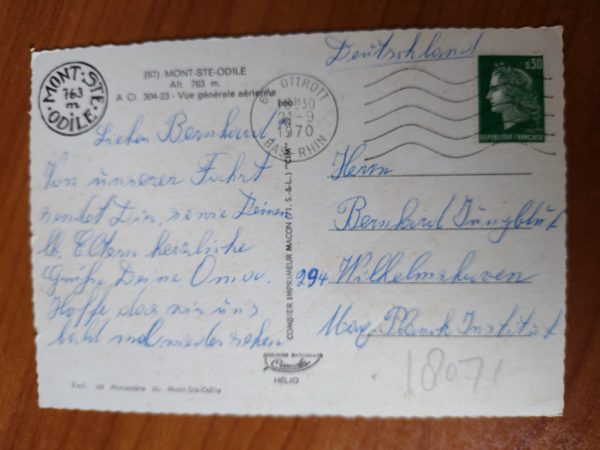 (67) MONT-STE-ODILE
Alt. 763 m.
A Cl. 304-23 - Vue générale aérienne
MONT-STE-ODILE
763
m
Lieber Bernhard!
Von unserer Fahrt
sendet Dir, sowie Deinen
lb. Eltern herzliche
Grüße Deine Oma.
Hoffe das wir uns
bald mal wiedersehen
Excl. de Monastère du Mont-Ste-Odile
COMBIER IMPRIMEUR MACON (71. S.-&-L.) "CIM"
HELIO
Deutschland
OTTROTT
-9
1970
BAS RHIN
0,30
REPUBLIQUE FRANÇAISE
Herrn
Bernhard Jungblut
294 Wilhelmshaven
Max Planck Institut
18071